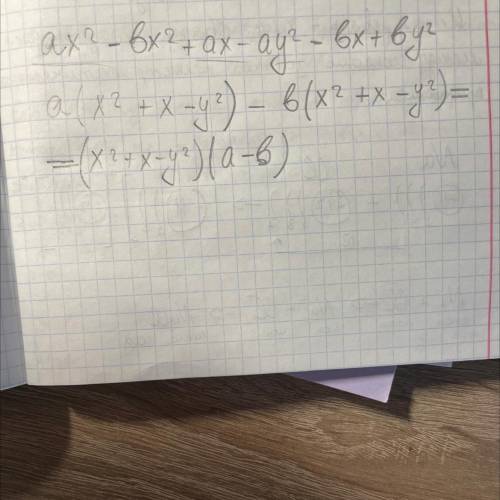 ax² - bx² + ax - ay² - bx + by²
a(x² + x - y²) - b(x² + x - y²) =
= (x² + x - y²)(a - b)